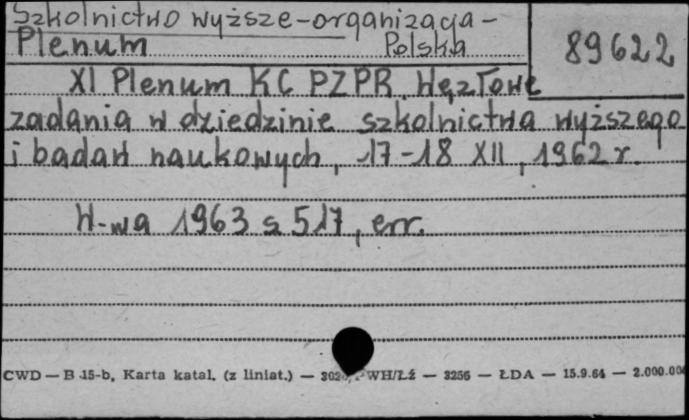 Szkolnictwo wyższe-organizacja-
Plenum Polska 89622
XI Plenum KC PZPR. Węzłowe
zadania w dziedzinie szkolnictwa wyższego
i badań naukowych, 17-18 XII, 1962 r.
W-wa 1963 s 517, err.
CWD — B 15-b, Karta katal. (z liniat.) — WH/Łź — 3256 — ŁDA — 15.9.64 — 2.000.000